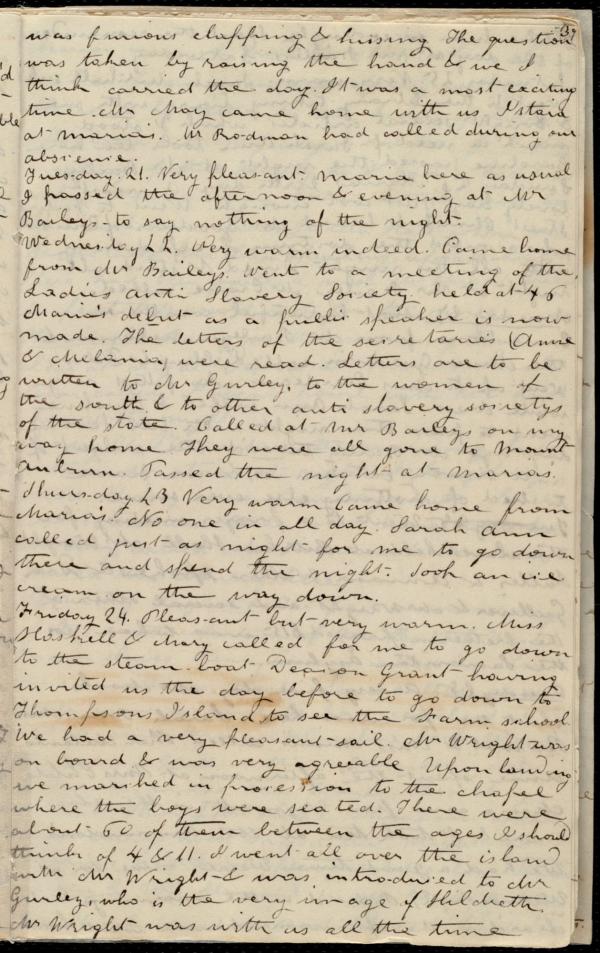 39
was furious clapping & hissing The question
was taken by raising the hand & we I
think carried the day. It was a most exciting
time. Mr May came home with us I staid
at marias. Mr Rodman had called during our
absience.
Tuesday. 21. Very pleasant maria here as usual
I passed the afternoon & evening at Mr
Baileys - to say nothing of the night.
Wednesday 22. Very warm indeed. Came home
from Mr Baileys. Went to a meeting of the
Ladies anti Slavery Society held at 46
Maria's debut as a public speaker is now
made. The letters of the secretaries (Anne
& Melania) were read. Letters are to be
written to Mr Gurley, to the women of
the south & to other anti slavery societys
of the state. Called at Mr Baileys on my
way home They were all gone to Mount
Auburn. Passed the night at Marias.
Thursday 23 Very warm Came home from
Maria's. No one in all day. Sarah Ann
called just as night for me to go down
there and spend the night. Took an ice
cream on the way down.
Friday 24. Pleasant but very warm. Miss
Haskell & Mary called for me to go down
to the steam boat Deacon Grant having
invited us the day before to go down to
Thompsons Island to see the Farm school
We had a very pleasant sail. Mr Wright was
on board & was very agreeable Upon landing
we marched in procession to the chapel
where the boys were seated. There were
about 60 of them between the ages I should
think of 4 & 11. I went all over the island
with Mr Wright & was introduced to Mr
Gurley, who is the very image of Hildreth.
Mr Wright was with us all the time